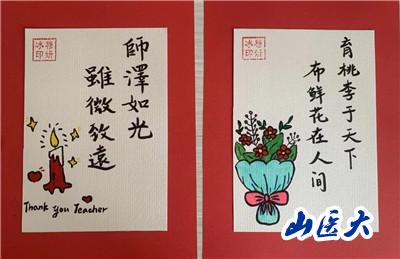 師澤如光
雖微致遠
Thank you Teacher
育桃李于天下
布鲜花在人间
山医大